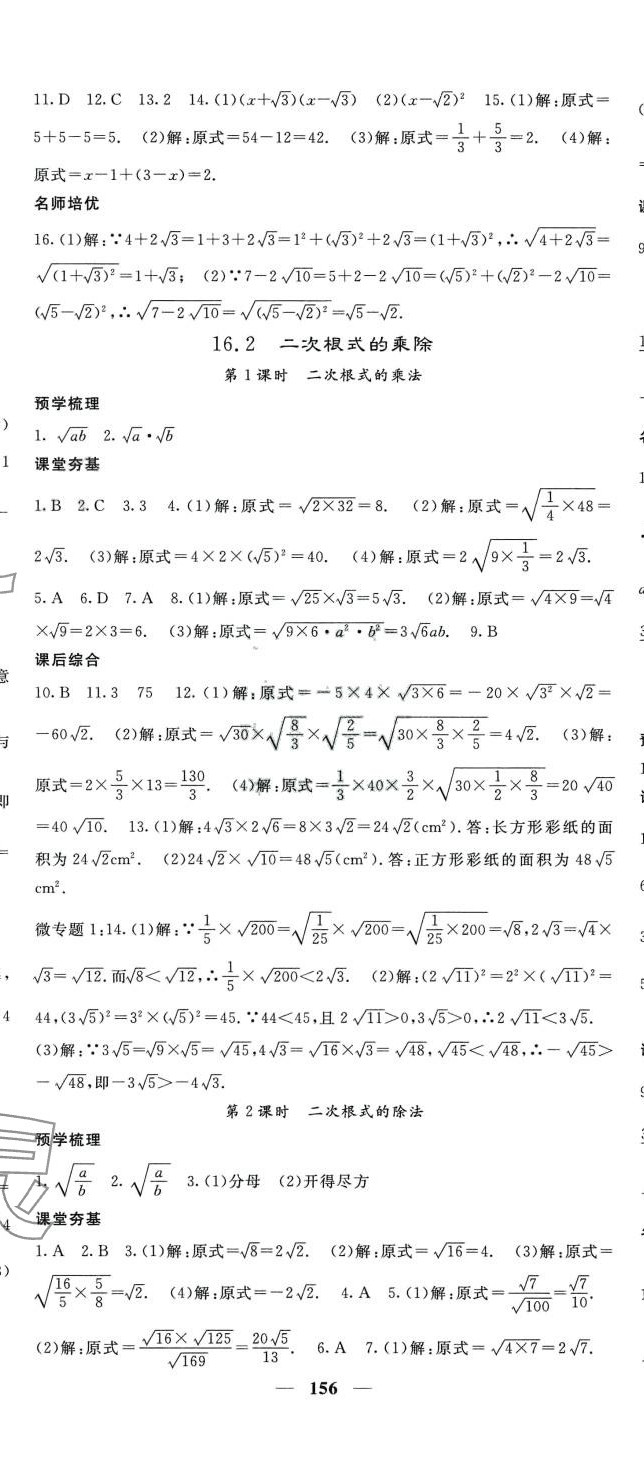 11. D 12. C 13. 2 14. (1)(x+√3)(x−√3) (2)(x−√2)² 15. (1)解:原式=
5+5−5=5. (2)解:原式=54−12=42. (3)解:原式=1/3+5/3=2. (4)解:
原式=x−1+(3−x)=2.
名师培优
16. (1)解:∵4+2√3=1+3+2√3=1²+(√3)²+2√3=(1+√3)²,∴√(4+2√3)=
√((1+√3)²)=1+√3; (2)∵7−2√10=5+2−2√10=(√5)²+(√2)²−2√10=
(√5−√2)²,∴√(7−2√10)=√((√5−√2)²)=√5−√2.
16.2 二次根式的乘除
第1课时 二次根式的乘法
预学梳理
1. √(ab) 2. √a·√b
课堂夯基
1. B 2. C 3. 3 4. (1)解:原式=√(2×32)=8. (2)解:原式=√(1/4×48)=
2√3. (3)解:原式=4×2×(√5)²=40. (4)解:原式=2√(9×1/3)=2√3.
5. A 6. D 7. A 8. (1)解:原式=√25×√3=5√3. (2)解:原式=√(4×9)=√4
×√9=2×3=6. (3)解:原式=√(9×6·a²·b²)=3√6ab. 9. B
课后综合
10. B 11. 3 75 12. (1)解:原式=−5×4×√(3×6)=−20×√(3²)×√2=
−60√2. (2)解:原式=√30×√(8/3)×√(2/5)=√(30×8/3×2/5)=4√2. (3)解:
原式=2×5/3×13=130/3. (4)解:原式=1/3×40×3/2×√(30×1/2×8/3)=20√40
=40√10. 13. (1)解:4√3×2√6=8×3√2=24√2(cm²).答:长方形彩纸的面
积为24√2cm². (2)24√2×√10=48√5(cm²).答:正方形彩纸的面积为48√5
cm².
微专题1:14. (1)解:∵1/5×√200=√(1/25)×√200=√(1/25×200)=√8,2√3=√4×
√3=√12.而√8<√12,∴1/5×√200<2√3. (2)解:(2√11)²=2²×(√11)²=
44,(3√5)²=3²×(√5)²=45.∵44<45,且2√11>0,3√5>0,∴2√11<3√5.
(3)解:∵3√5=√9×√5=√45,4√3=√16×√3=√48,√45<√48,∴−√45>
−√48,即−3√5>−4√3.
第2课时 二次根式的除法
预学梳理
1. √(a/b) 2. √(a/b) 3. (1)分母 (2)开得尽方
课堂夯基
1. A 2. B 3. (1)解:原式=√8=2√2. (2)解:原式=√16=4. (3)解:原式=
√(16/5×5/8)=√2. (4)解:原式=−2√2. 4. A 5. (1)解:原式=√7/√100=√7/10.
(2)解:原式=(√16×√125)/√169=20√5/13. 6. A 7. (1)解:原式=√(4×7)=2√7.
— 156 —